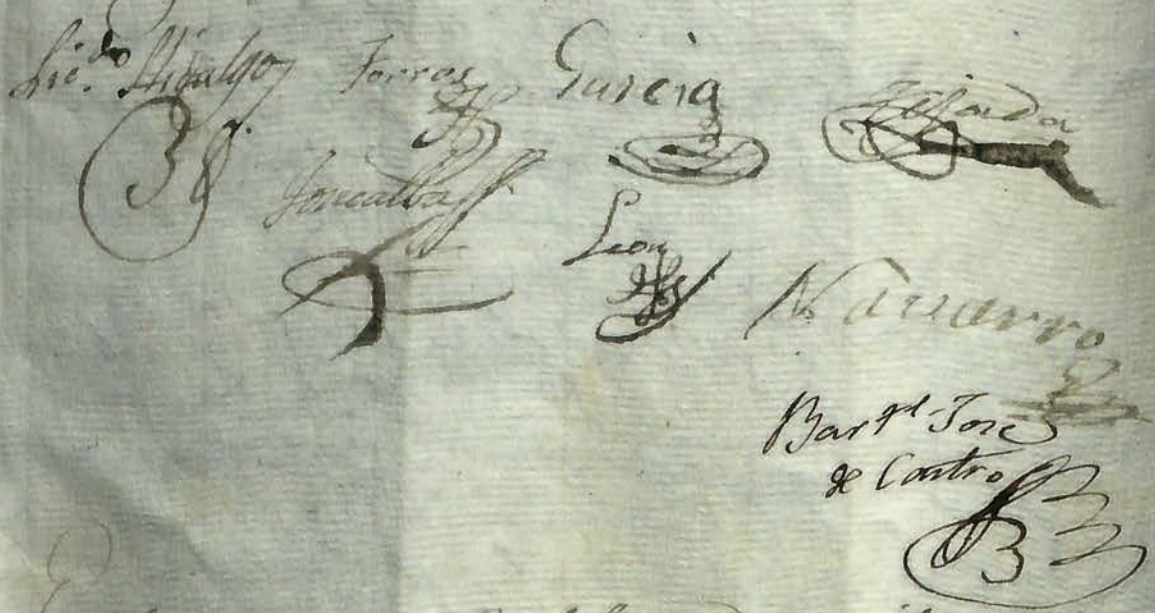 Lic.do Hidalgo Torres Garcia Tejada
Leon
Navarro
Bart.l Jose
de Castro